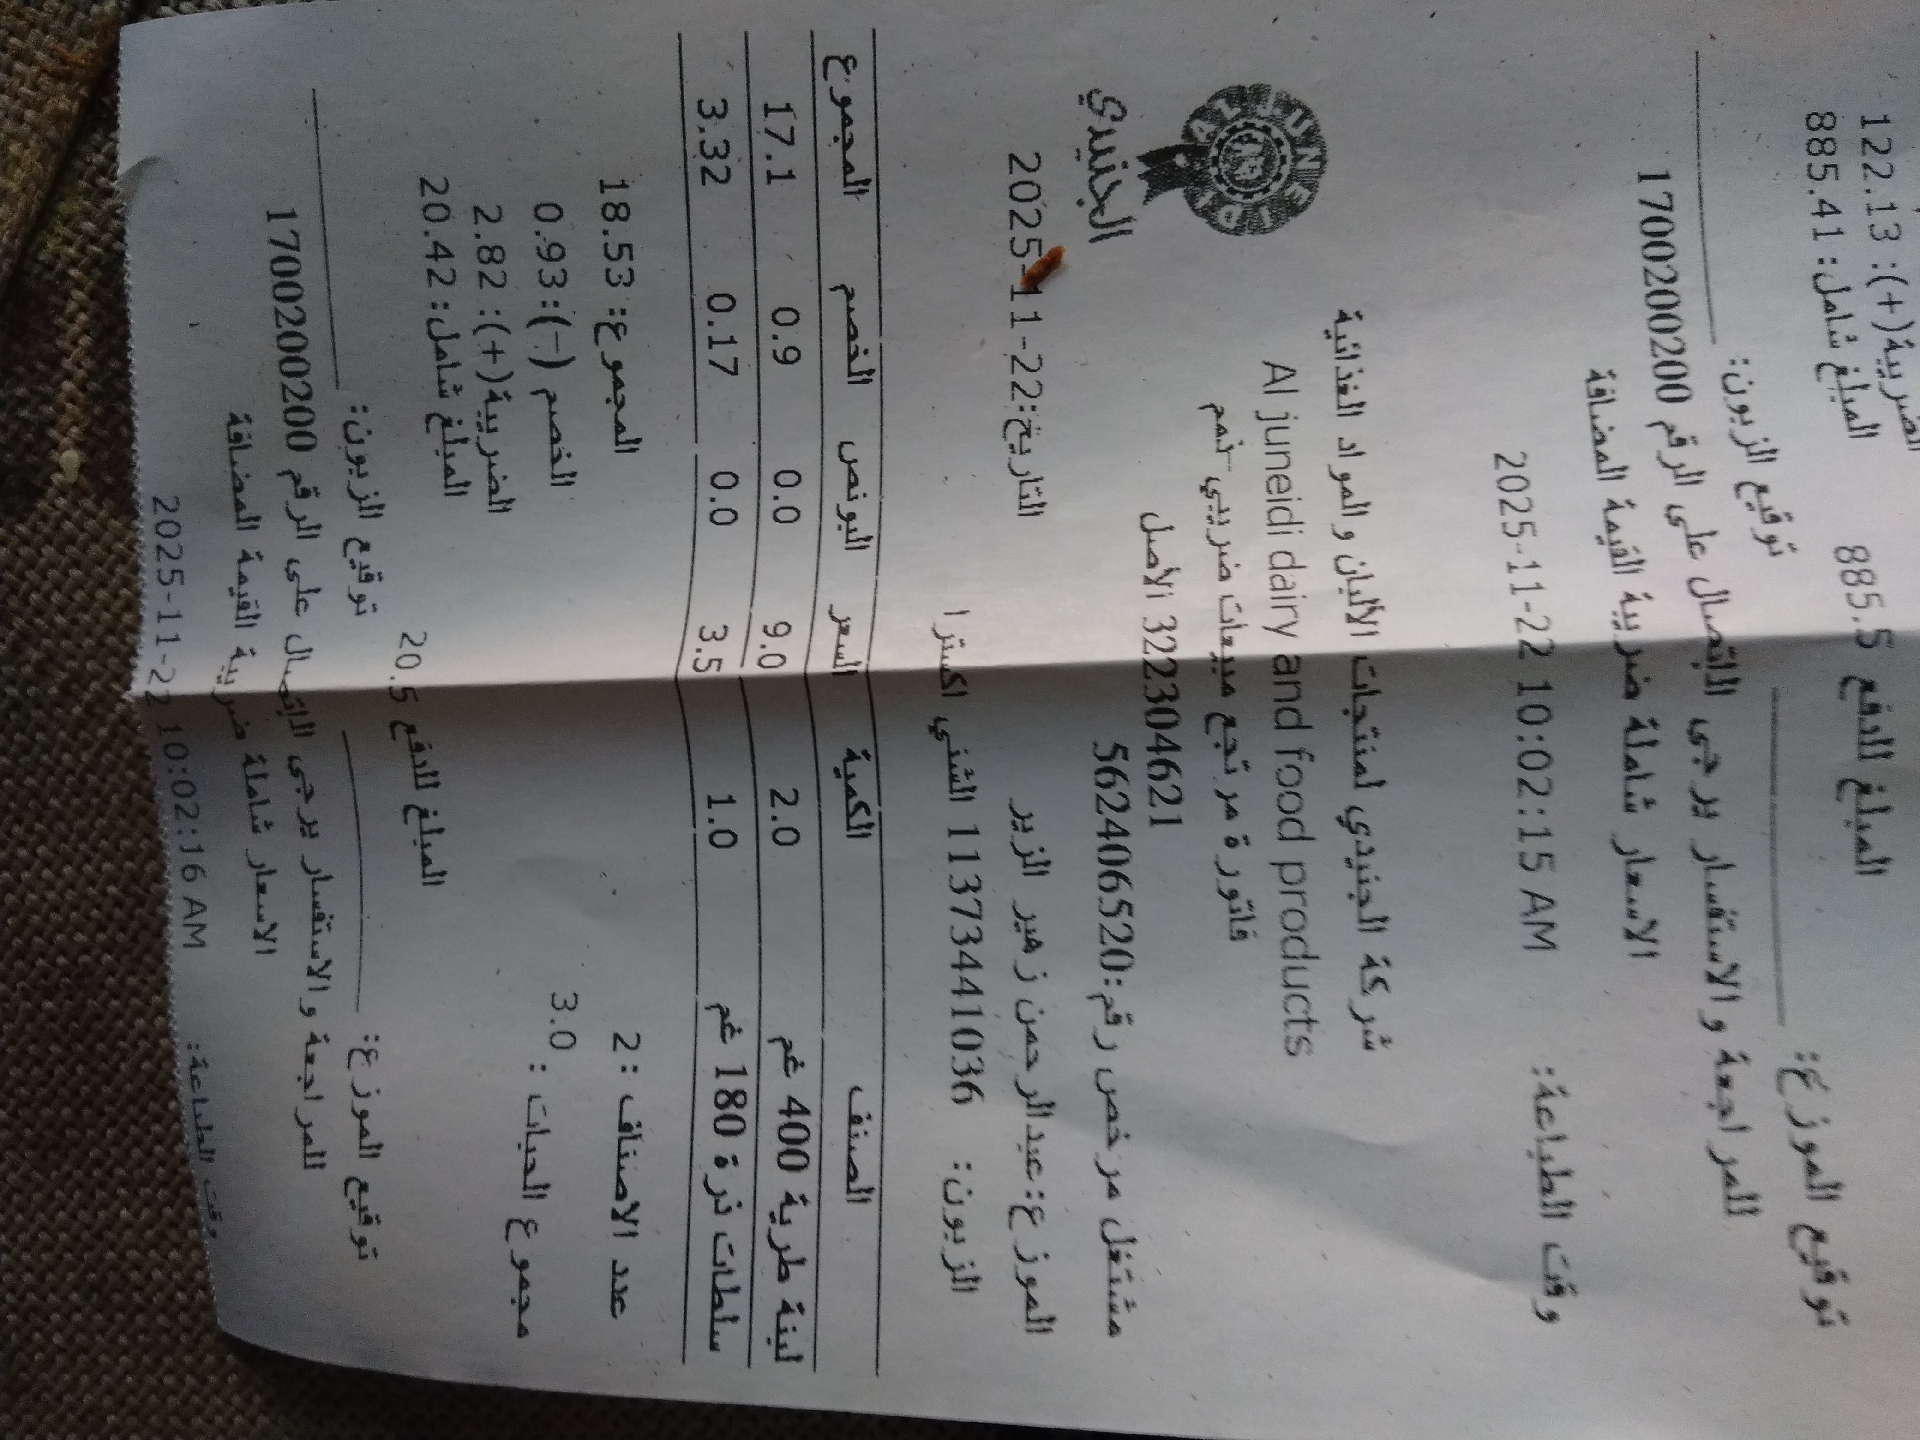 المبلغ للدفع 885.5
الضريبة(+): 122.13
المبلغ شامل: 885.41
توقيع الموزع:
توقيع الزبون:
للمراجعة و الاستفسار يرجى الإتصال على الرقم 1700200200
الاسعار شاملة ضريبة القيمة المضافة
وقت الطباعة: 2025-11-22 10:02:15 AM
AL JUNEIDI
الجنيدي
شركة الجنيدي لمنتجات الألبان و المواد الغذائية
Al juneidi dairy and food products
فاتورة مرتجع مبيعات ضريبي ذمم
322304621 الأصل
مشتغل مرخص رقم:562406520
الموزع:عبدالرحمن زهير الزير التاريخ:22-11-2025
الزبون: 1137341036 الشني اكسترا
الصنف الكمية السعر البونص الخصم المجموع
لبنة طرية 400 غم 2.0 9.0 0.0 0.9 17.1
سلطات ذرة 180 غم 1.0 3.5 0.0 0.17 3.32
عدد الاصناف :2 المجموع: 18.53
مجموع الحبات : 3.0 الخصم (-): 0.93
الضريبة(+): 2.82
المبلغ شامل: 20.42
المبلغ للدفع 20.5
توقيع الموزع: توقيع الزبون:
للمراجعة و الاستفسار يرجى الإتصال على الرقم 1700200200
الاسعار شاملة ضريبة القيمة المضافة
وقت الطباعة: 2025-11-22 10:02:16 AM